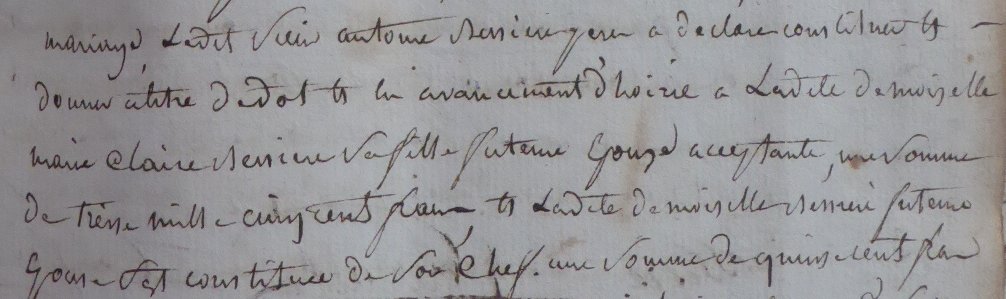 mariage, Ledit Sieur antoine Bessiere pere a declaré constituer et
donner a titre de dot et en avancement d'hoirie a Ladite demoiselle
marie Claire Bessiere Sa fille future Epouse acceptante, une Somme
de treise mille cinq cent fran et Ladite demoiselle Bessiere future
Epouse S'est constituee de Son Chef une Somme de quinse cent fran